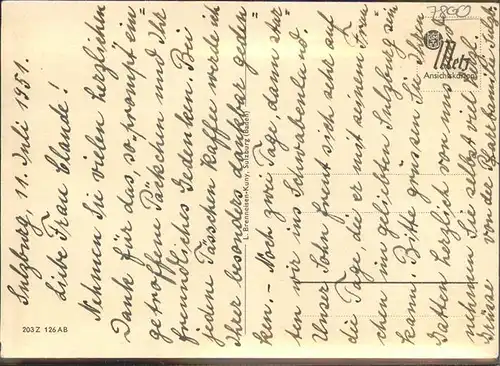 Sulzburg, 11. Juli 1951.
Liebe Frau Claude!
Nehmen Sie vielen herzlichen
Dank für das so prompt ein=
getroffene Päckchen und Ihr
freundliches Gedenken. Bei
jedem Tässchen Kaffee werde ich
Ihrer besonders dankbar geden=
ken. – Noch zwei Tage, dann star=
ten wir ins Schwabenland.
Unser Sohn freut sich sehr auf
die Tage die er mit seinem
chen im geliebten Sulzburg sein
kann. Bitte grüssen Sie Ihren
Gatten herzlich von uns
nehmen Sie selbst viel
Grüsse von der
L. Brenneisen-Kuny, Sulzburg (Baden)
Metz
Ansichtskarten
203 Z 126 AB
7800